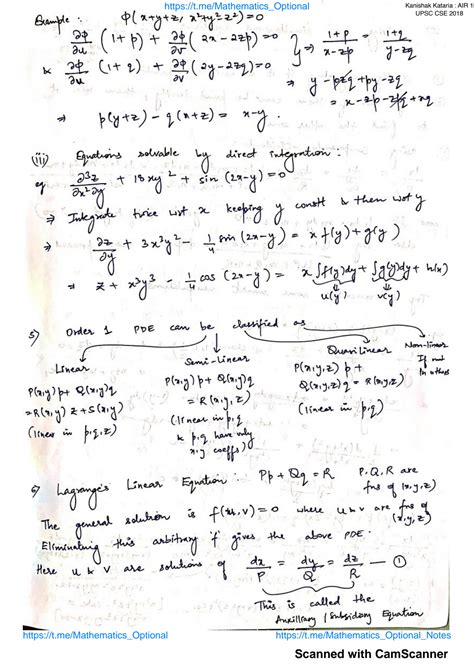 https://t.me/Mathematics_Optional
Kanishak Kataria : AIR 1
UPSC CSE 2018
Example : ϕ(x+y+z, x²+y²-z²)=0
∂ϕ/∂u (1+p) + ∂ϕ/∂v (2x-2zp)=0
& ∂ϕ/∂u (1+q) + ∂ϕ/∂v (2y-2zq)=0 } ⇒ (1+p)/(x-zp) = (1+q)/(y-zq)
⇒ y - pzq + py - zq
= x - zp - zpq + xq
⇒ p(y+z) - q(x+z) = x-y.
(iii) Equations solvable by direct integration :
eg ∂³z/∂x²∂y + 18xy² + sin(2x-y)=0
⇒ Integrate twice wrt x keeping y constt & then wrt y
⇒ ∂z/∂y + 3x³y² - 1/4 sin(2x-y) = x f(y) + g(y)
⇒ z + x³y³ - 1/4 cos(2x-y) = x∫f(y)dy + ∫g(y)dy + h(x)
u(y) v(y)
5) Order 1 PDE can be classified as
Linear
P(x,y)p + Q(x,y)q
= R(x,y) z + S(x,y)
(linear in p,q,z)
Semi-Linear
P(x,y)p + Q(x,y)q
= R(x,y,z)
(linear in p,q
& p,q have only
x,y coeffs)
Quasi Linear
P(x,y,z)p +
Q(x,y,z)q = R(x,y,z)
(linear in p,q)
Non-linear
If not
in others
6) Lagrange's Linear Equation : Pp + Qq = R P,Q,R are
fns of (x,y,z)
The general solution is f(u,v)=0 where u & v are fns of
(x,y,z)
Eliminating this arbitrary f gives the above PDE.
Here u & v are solutions of dx/P = dy/Q = dz/R — ①
This is called the
Auxillrary / Subsidary Equation
https://t.me/Mathematics_Optional
https://t.me/Mathematics_Optional_Notes
Scanned with CamScanner